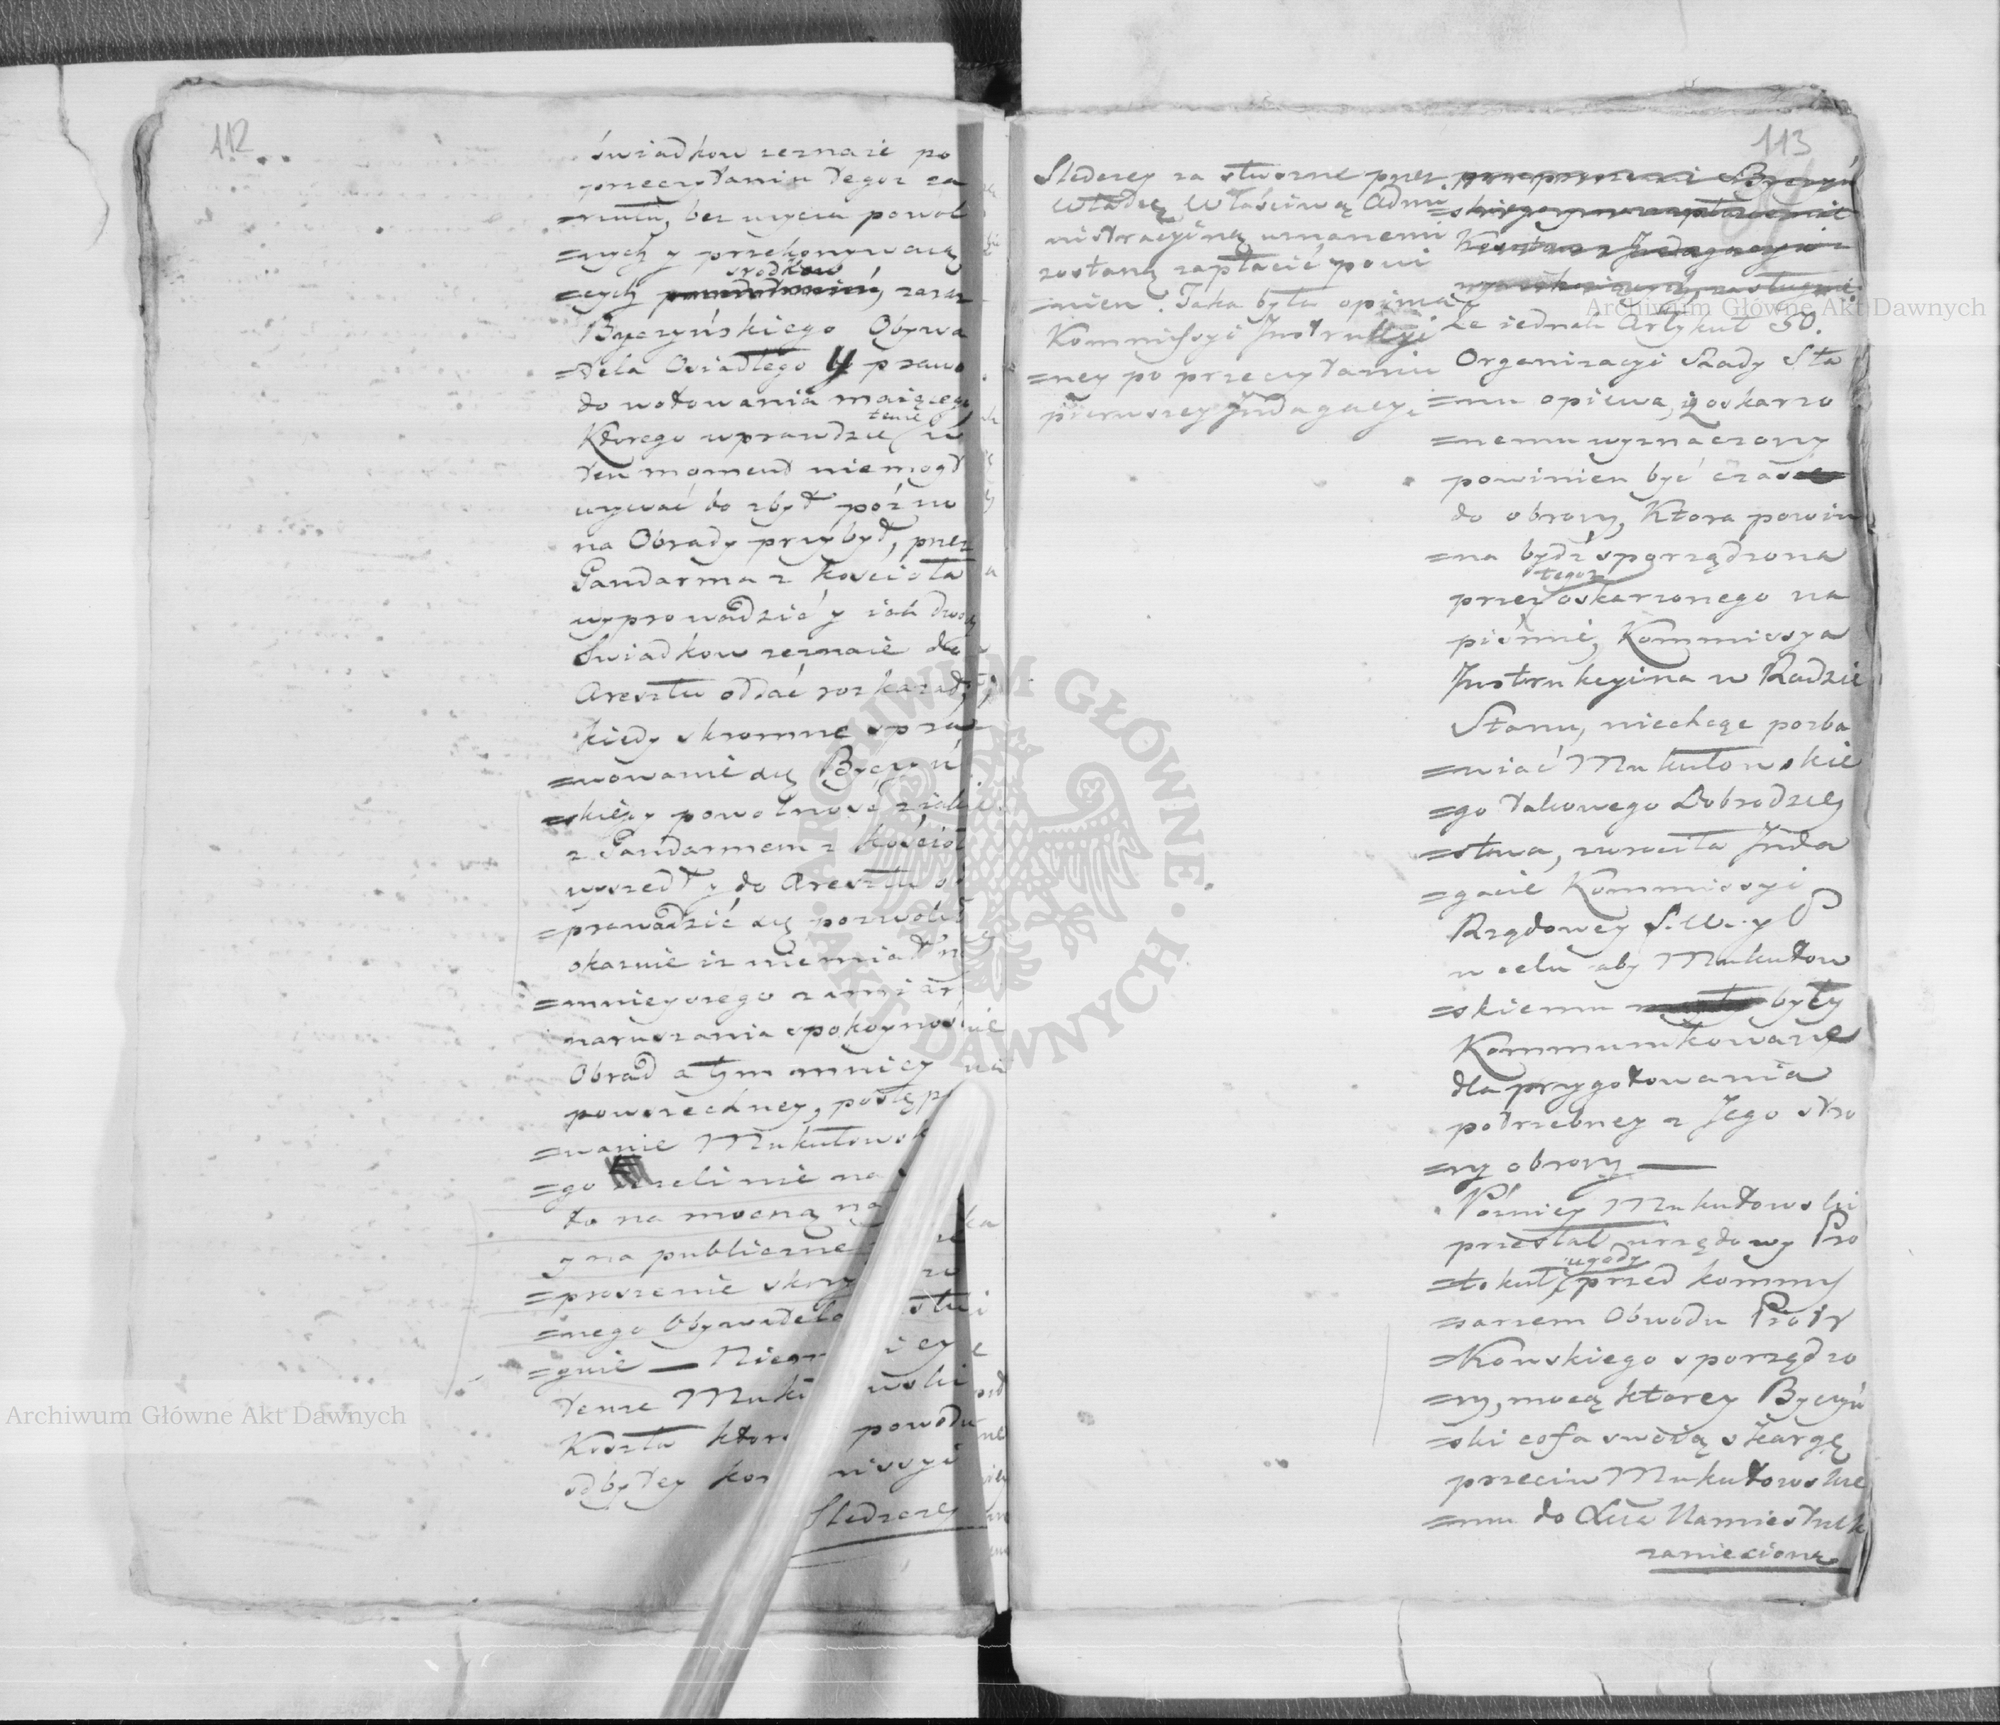 112
świadkow zeznaie po
przeczytaniu tegoż za
=rzutu, bez użycia powol
=nych y przekonywaią
środkow
=cych zaraz
Byczyńskiego Obywa
=tela Osiadłego y prawo
do wotowania maiącego
Którego wprawdzie w
ten moment niemogł
używać bo zbyt poźno
na Obrady przybył, przez
Żandarma z kościoła
wyprowadzić y iak dwoch
Swiadkow zeznaie do
Aresztu oddać rozkazał,
kiedy skromne spra
=wowanie się Byczyń
=skiego y powolność z iaką
z Żandarmem z kościoł
wyszedł y do Aresztu o
=prowadzić się pozwolił
okazuie iż niemiał nay
=mnieyszego zamiar
naruszania spokoyności
Obrad a tym mniey
powszechney, postęp
=wanie Mukułowsk
=go ieżeli nie na
to na mocną na
y na publiczne
=proszenie skrzy
=nego Obywatela
=guie —
tenże Muk wski
Koszta ktor powodu
odbytey kom missyi
Sledczey
113
Sledczey za słuszne przez
Władzę Właściwą Admi
nistracyiną uznanemi
zostaną zapłacić powi
=nien. Taka była opinia
Kommissyi Instrukcyi
=ney po przeczytaniu
pierwszey Indagacyi.
Że iednak Artykuł 50.
Organizacyi Rady Sta
=nu opiewa, iż oskarżo
=nemu wyznaczony
powinien być czas
do obrony, Ktora powin
=na bydź sporządzona
tegoż
przez oskarżonego na
piśmie, Kommissya
Instrukcyina w Radzie
Stanu, niechcąc pozba
=wiać Mukułowskie
=go takowego Dobrodziey
=stwa, zwrociła Inda
=gacie Kommissyi
Rządowey S. W. y P
w celu aby Mukułow
=skiemu były
Kommunikowane
dla przygotowania
potrzebney z Jego stro
=ny obrony —
Poźniey Mukułowski
przesłał urzędowy Pro
ugody
=tokuł, przed kommis
=sarzem Obwodu Piotr
=Kowskiego sporządzo
=ny, mocą ktorey Byczyń
=ski cofa swoią skargę
przeciw Mukułowskie
=mu do Xcia Namiestnik
zaniesioną
Archiwum Główne Akt Dawnych
Archiwum Główne Akt Dawnych
ARCHIWUM GŁÓWNE · AKT DAWNYCH ·